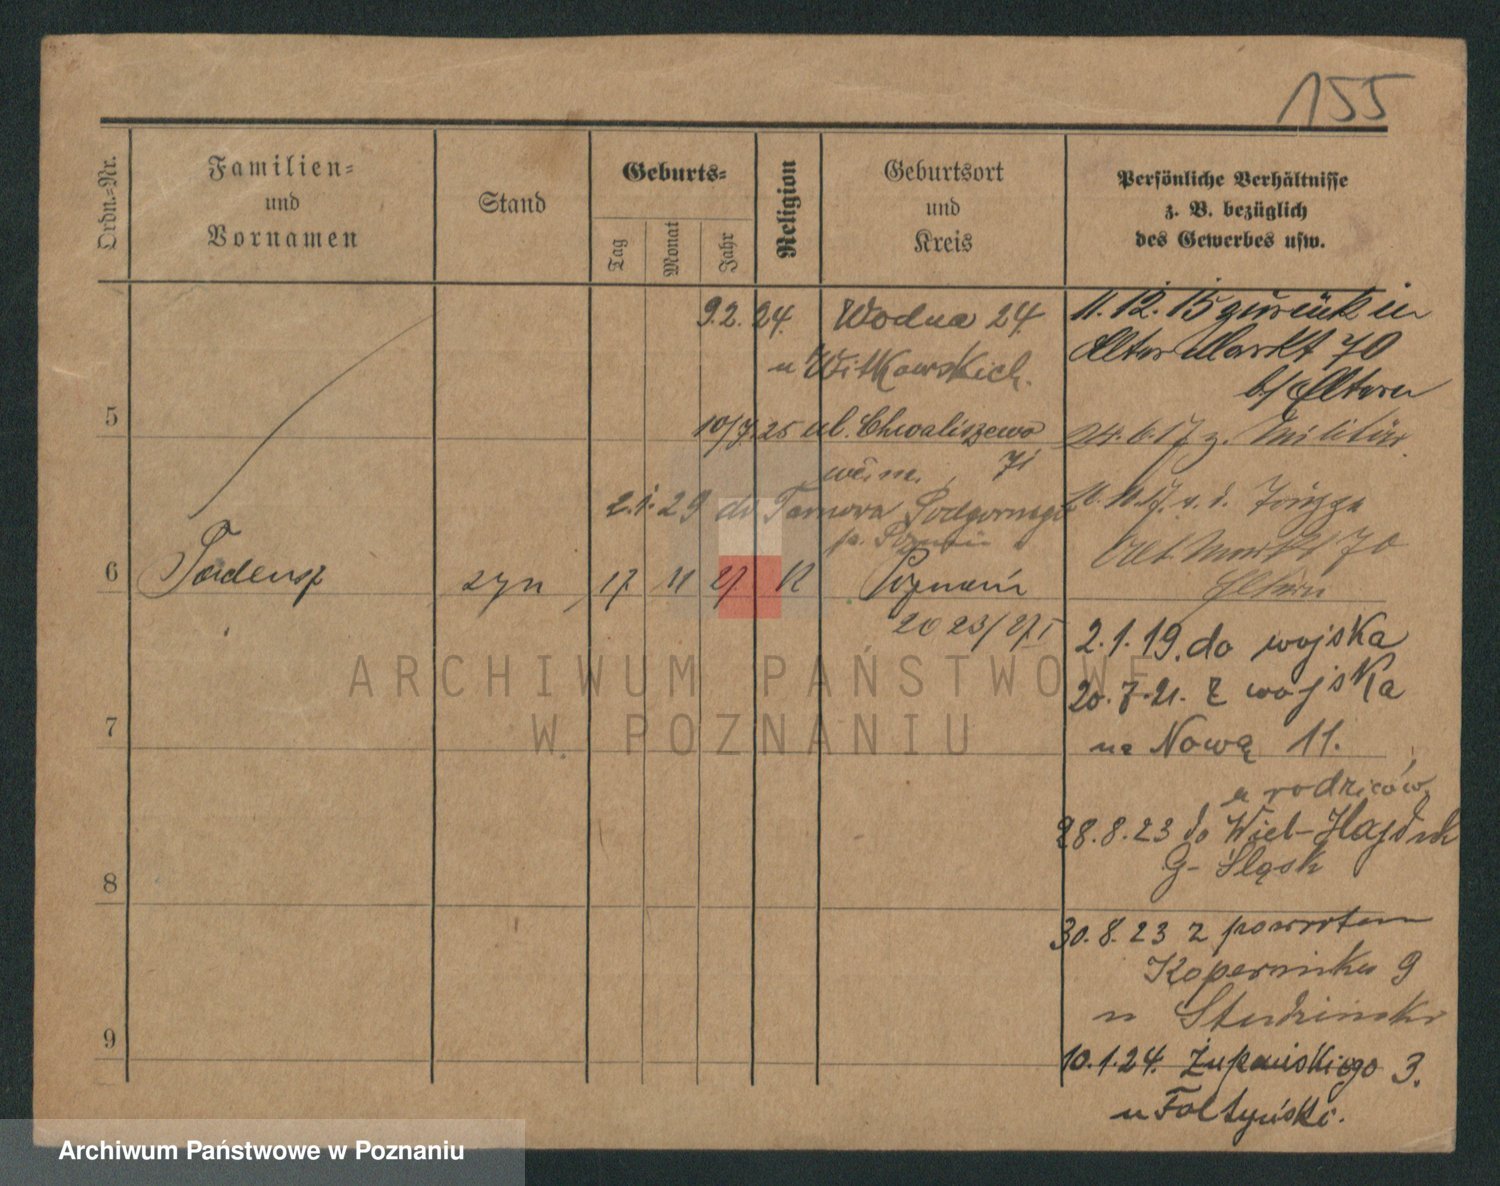 155
Ordn.=Nr.
Familien=
und
Vornamen
Stand
Geburts=
Tag
Monat
Jahr
Religion
Geburtsort
und
Kreis
Persönliche Verhältnisse
z. B. bezüglich
des Gewerbes usw.
9.2.24. Wodna 24.
u Witkowskich.
10/7.25 ul. Chwaliszewo
71
2.1.29 do Tarnowa Podgornego
p. Poznań
5
6 Tadeusz syn 17 11 27. K Poznań
2023/27 I
7
8
9
11.12.15 zurück in
Alter Markt 70
b/ Eltern
24.6.17 z. Militär.
Alt. Markt 70
Eltern
2.1.19. do wojska
20.7.21. z wojska
na Nową 11.
u rodziców.
28.8.23 do Wiel-Hajduk
G- Śląsk
30.8.23 z powrotem
Kopernika 9
u
10.1.24. Żupańskiego 3.
u
ARCHIWUM PAŃSTWOWE
W POZNANIU
Archiwum Państwowe w Poznaniu